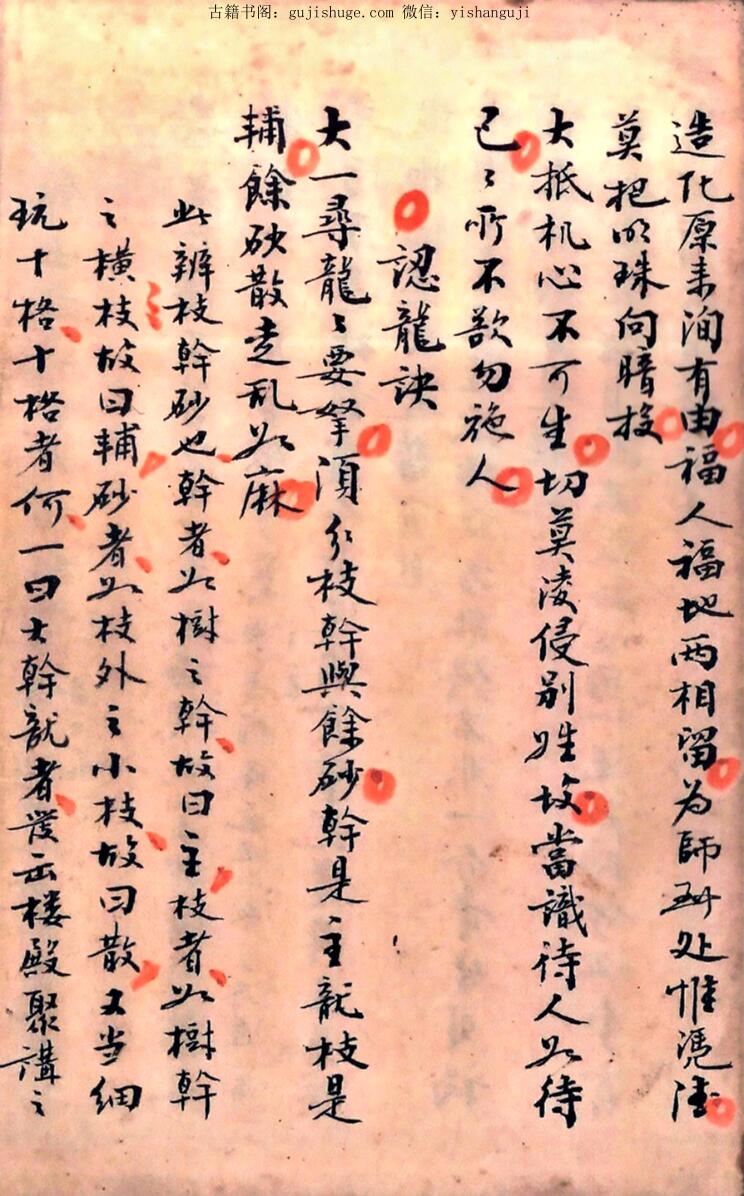 古籍书阁：gujishuge.com 微信：yishanguji
造化原来洵有由福人福地两相留为師到处惟凭德
莫把明珠向暗投
大抵机心不可生切莫凌侵别姓坟當識待人如待
已〻所不欲勿施人
認龍訣
大一尋龍〻要拏須分枝幹與餘砂幹是主龍枝是
輔餘砂散走乱如麻
此辨枝幹砂也幹者如樹之幹故曰主枝者如樹幹
之横枝故曰輔砂者如枝外之小枝故曰散又当细
玩十格十格者何一曰大幹龍者發出楼殿聚講之